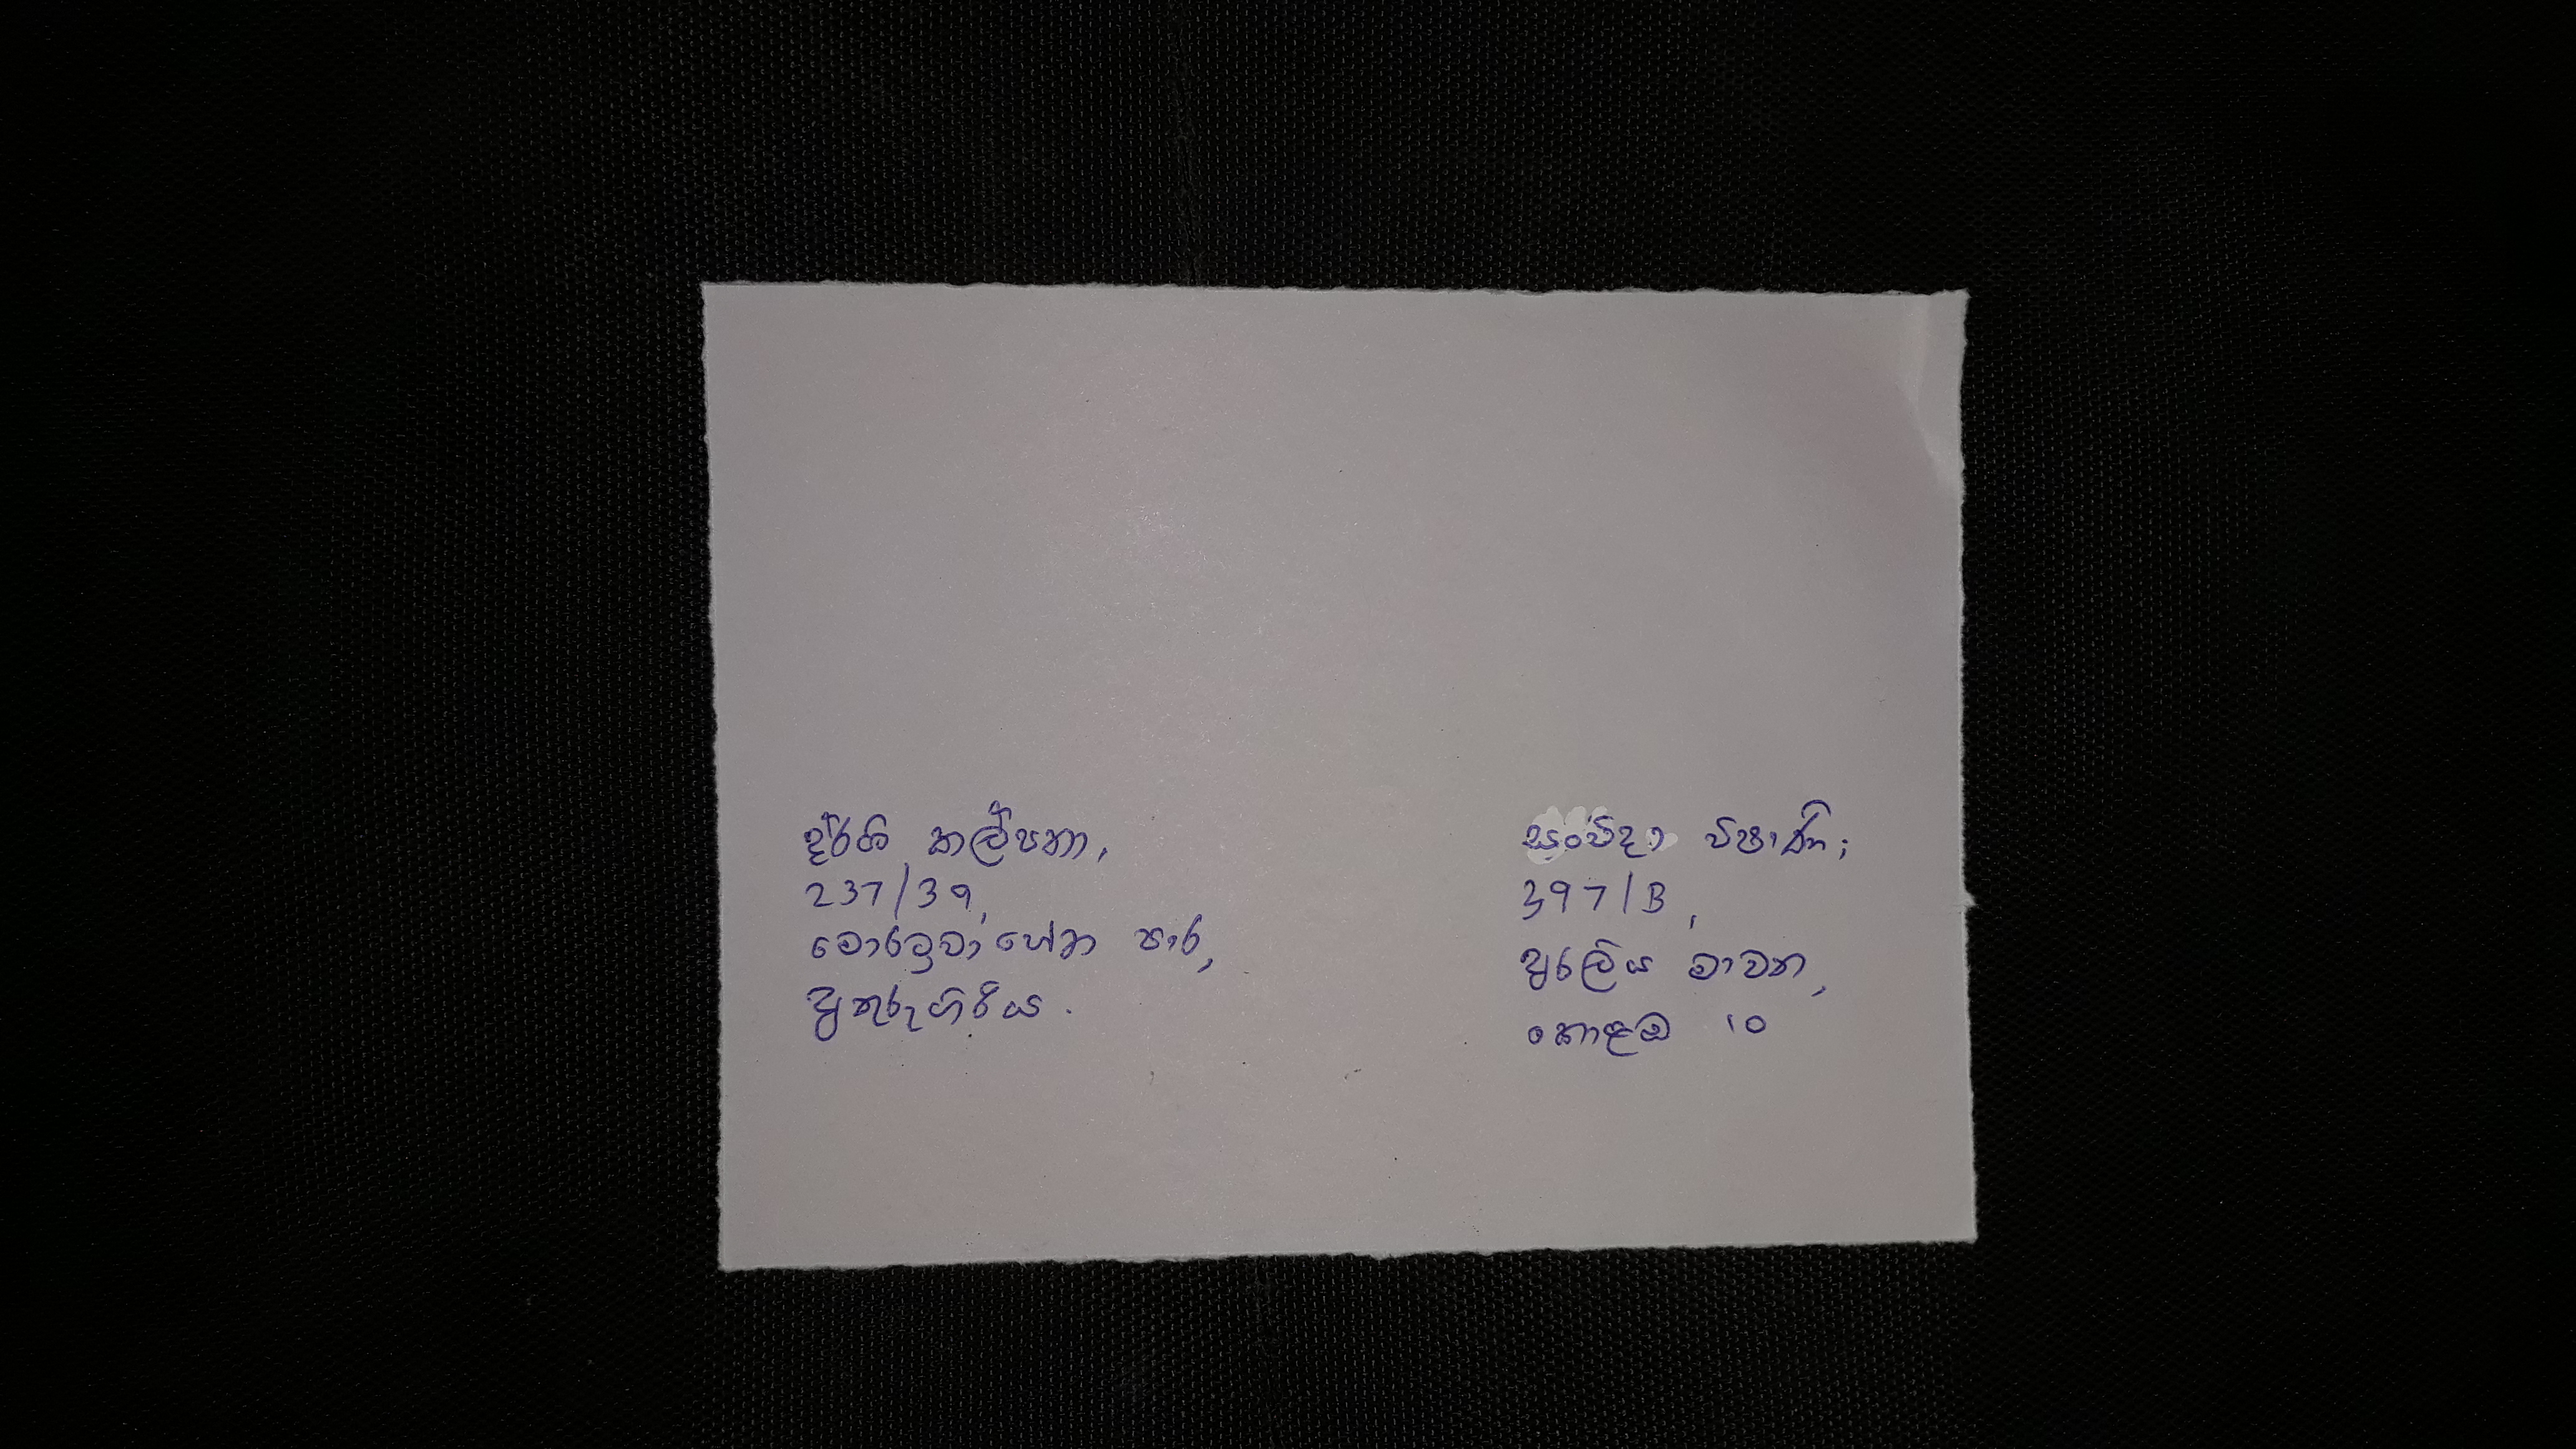 දර්ශි කල්පනා,
237/39,
මොරටුවාහේන පාර,
අතුරුගිරිය.
සංච්දා විෂානි,
397/B,
අරලිය මාවත,
කොළඹ 10